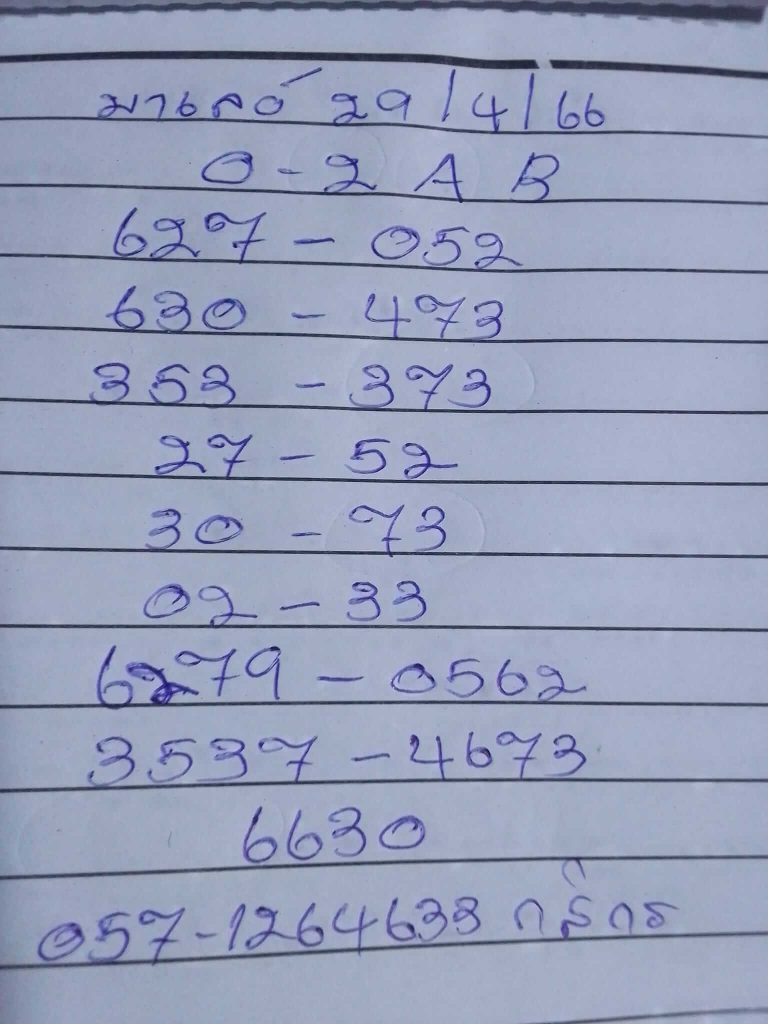 มาเลย์ 29/4/66
0-2 A B
627 - 052
630 - 473
353 - 373
27 - 52
30 - 73
02 - 33
6279 - 0562
3537 - 4673
6630
057-1264633 กสิกร